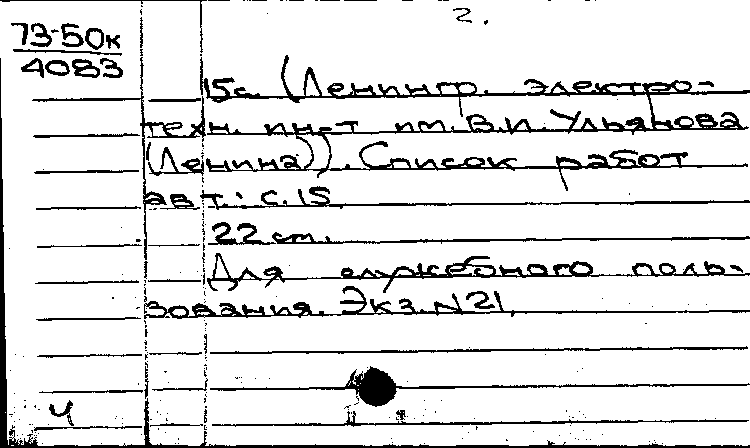 2.
73-50к
4083
15с. (Ленингр. электро-
техн. ин-т им. В.И. Ульянова
(Ленина)). Список работ
авт.: с.15
22 см.
Для служебного поль-
зования. Экз. N21.
ч